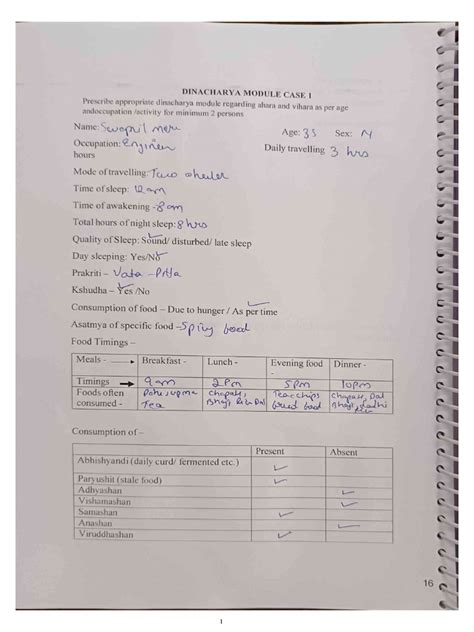 DINACHARYA MODULE CASE 1
Prescribe appropriate dinacharya module regarding ahara and vihara as per age
andoccupation /activity for minimum 2 persons
Name: Swapnil more Age: 35 Sex: M
Occupation: Engineer Daily travelling 3 hrs
hours
Mode of travelling: Two wheeler
Time of sleep: 12 am
Time of awakening - 8am
Total hours of night sleep: 8 hrs
Quality of Sleep: Sound/ disturbed/ late sleep
Day sleeping: Yes/No
Prakriti – Vata - Pitta
Kshudha – Yes /No
Consumption of food – Due to hunger / As per time
Asatmya of specific food - Spicy food
Food Timings –
Meals - Breakfast - Lunch - Evening food - Dinner -
Timings 9 am 2 Pm 5 Pm 10 Pm
Foods often consumed - Pohe, upma Tea Chapati, Bhaji Rice Dal Tea chips fried food Chapati, Dal Bhaji
Consumption of –
Present Absent
Abhishyandi (daily curd/ fermented etc.)
Paryushit (stale food)
Adhyashan
Vishamashan
Samashan
Anashan
Viruddhashan
16
1